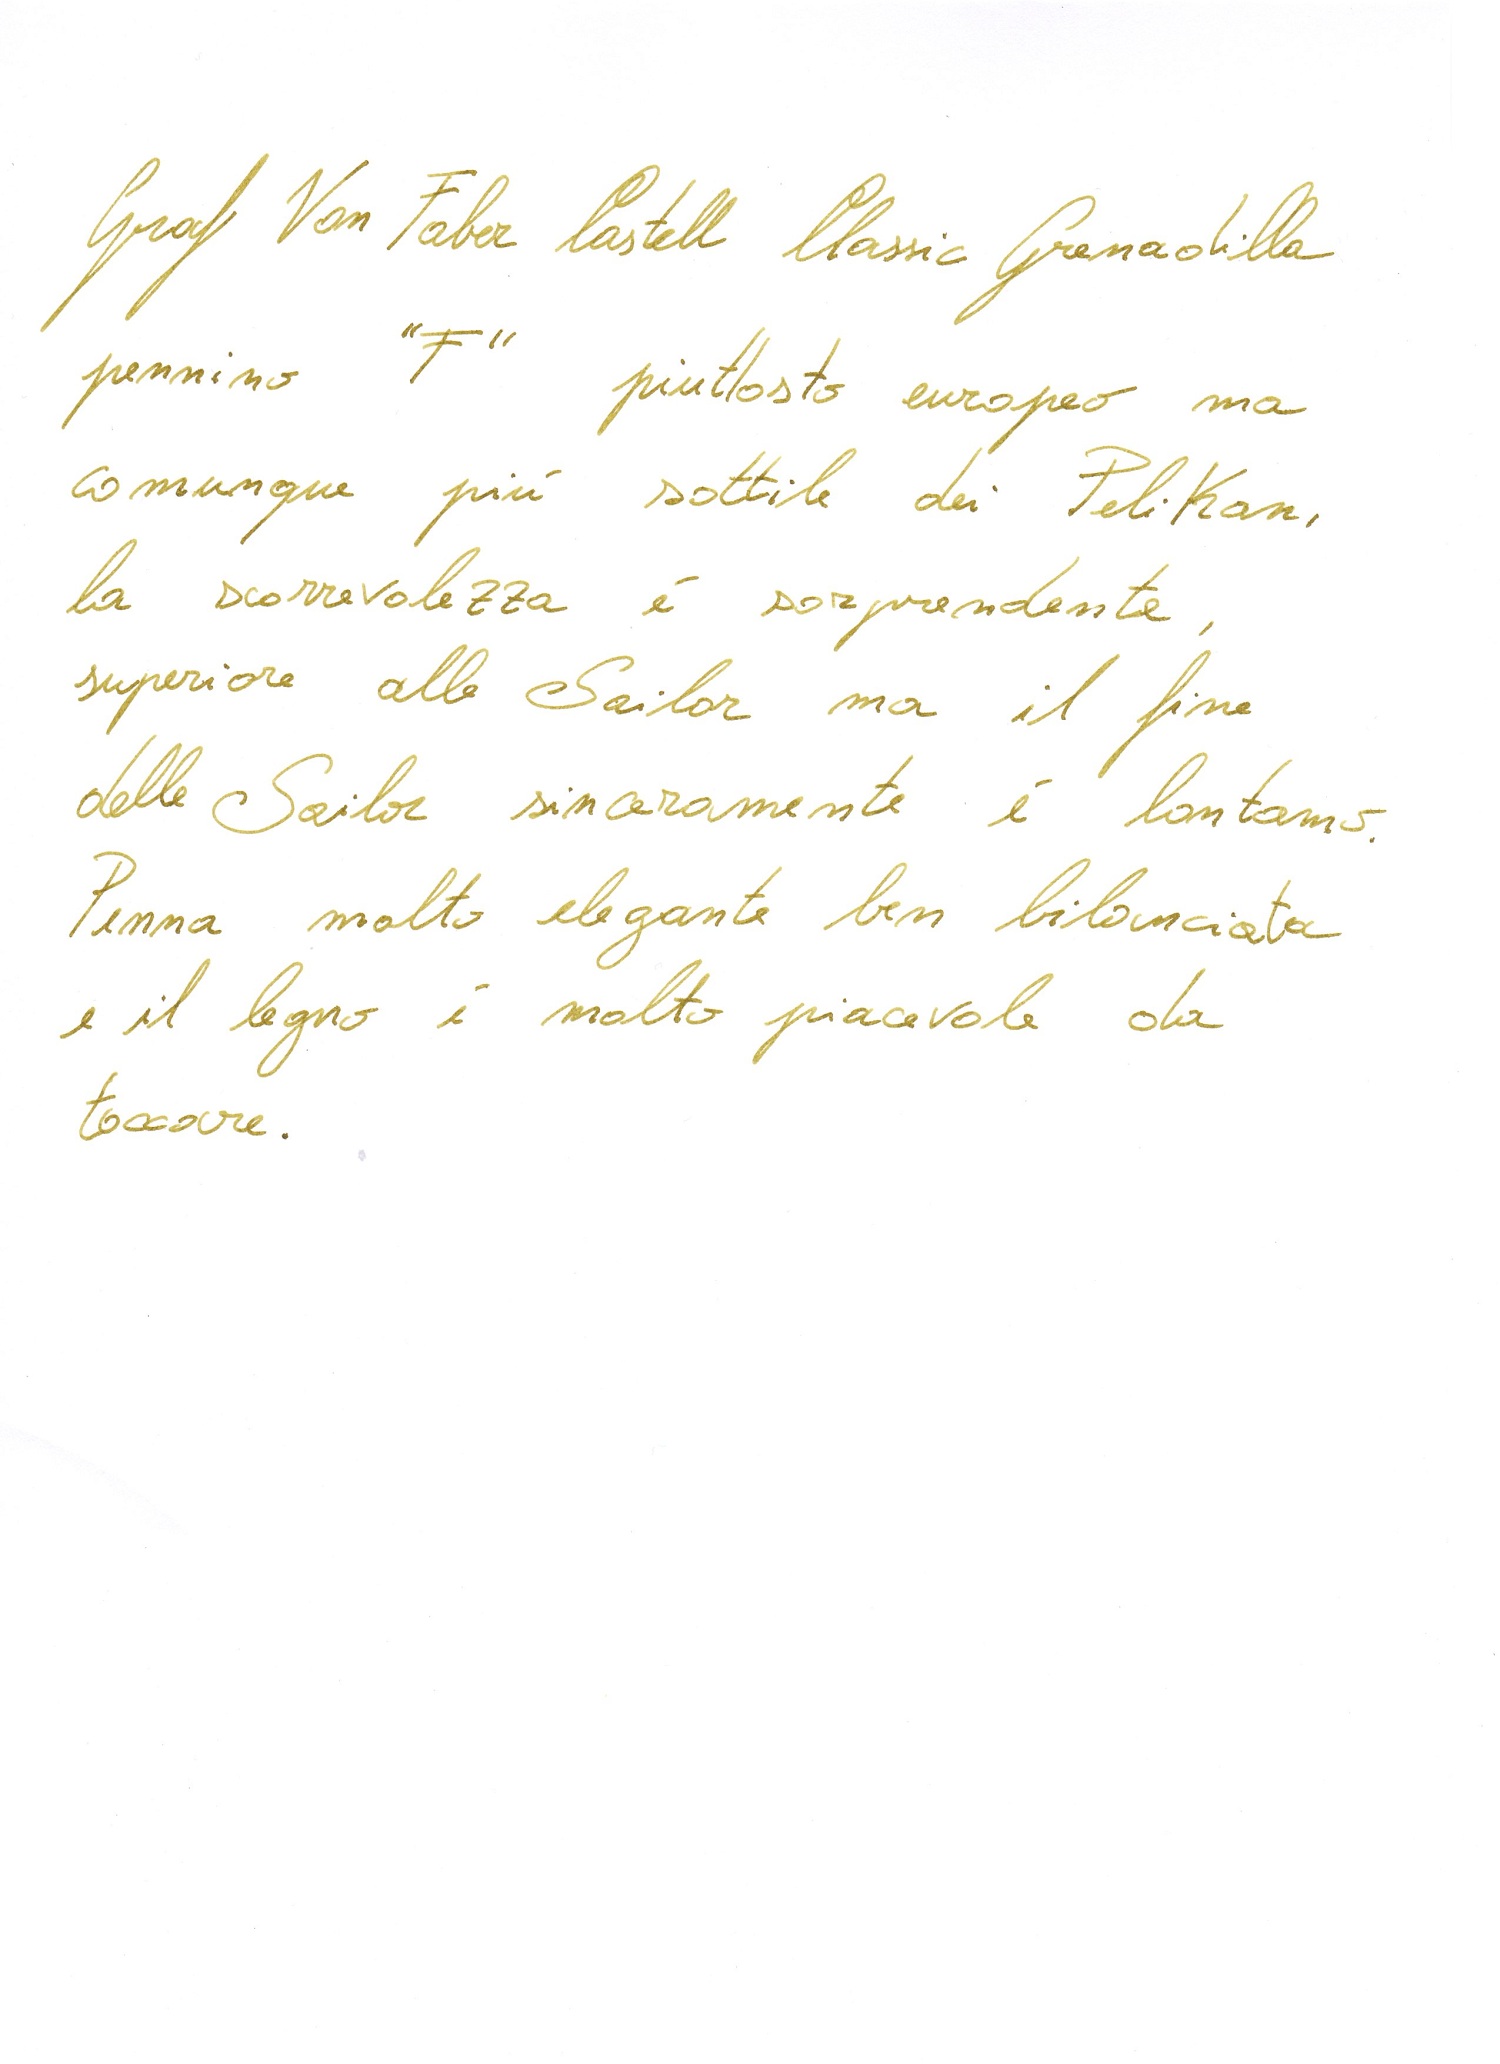 Graf Von Faber Castell Classic Grenadilla
pennino "F" piuttosto europeo ma
comunque più sottile dei Pelikan,
la scorrevolezza é sorprendente,
superiore alle Sailor ma il fine
delle Sailor sinceramente é lontano.
Penna molto elegante ben bilanciata
e il legno é molto piacevole da
toccare.